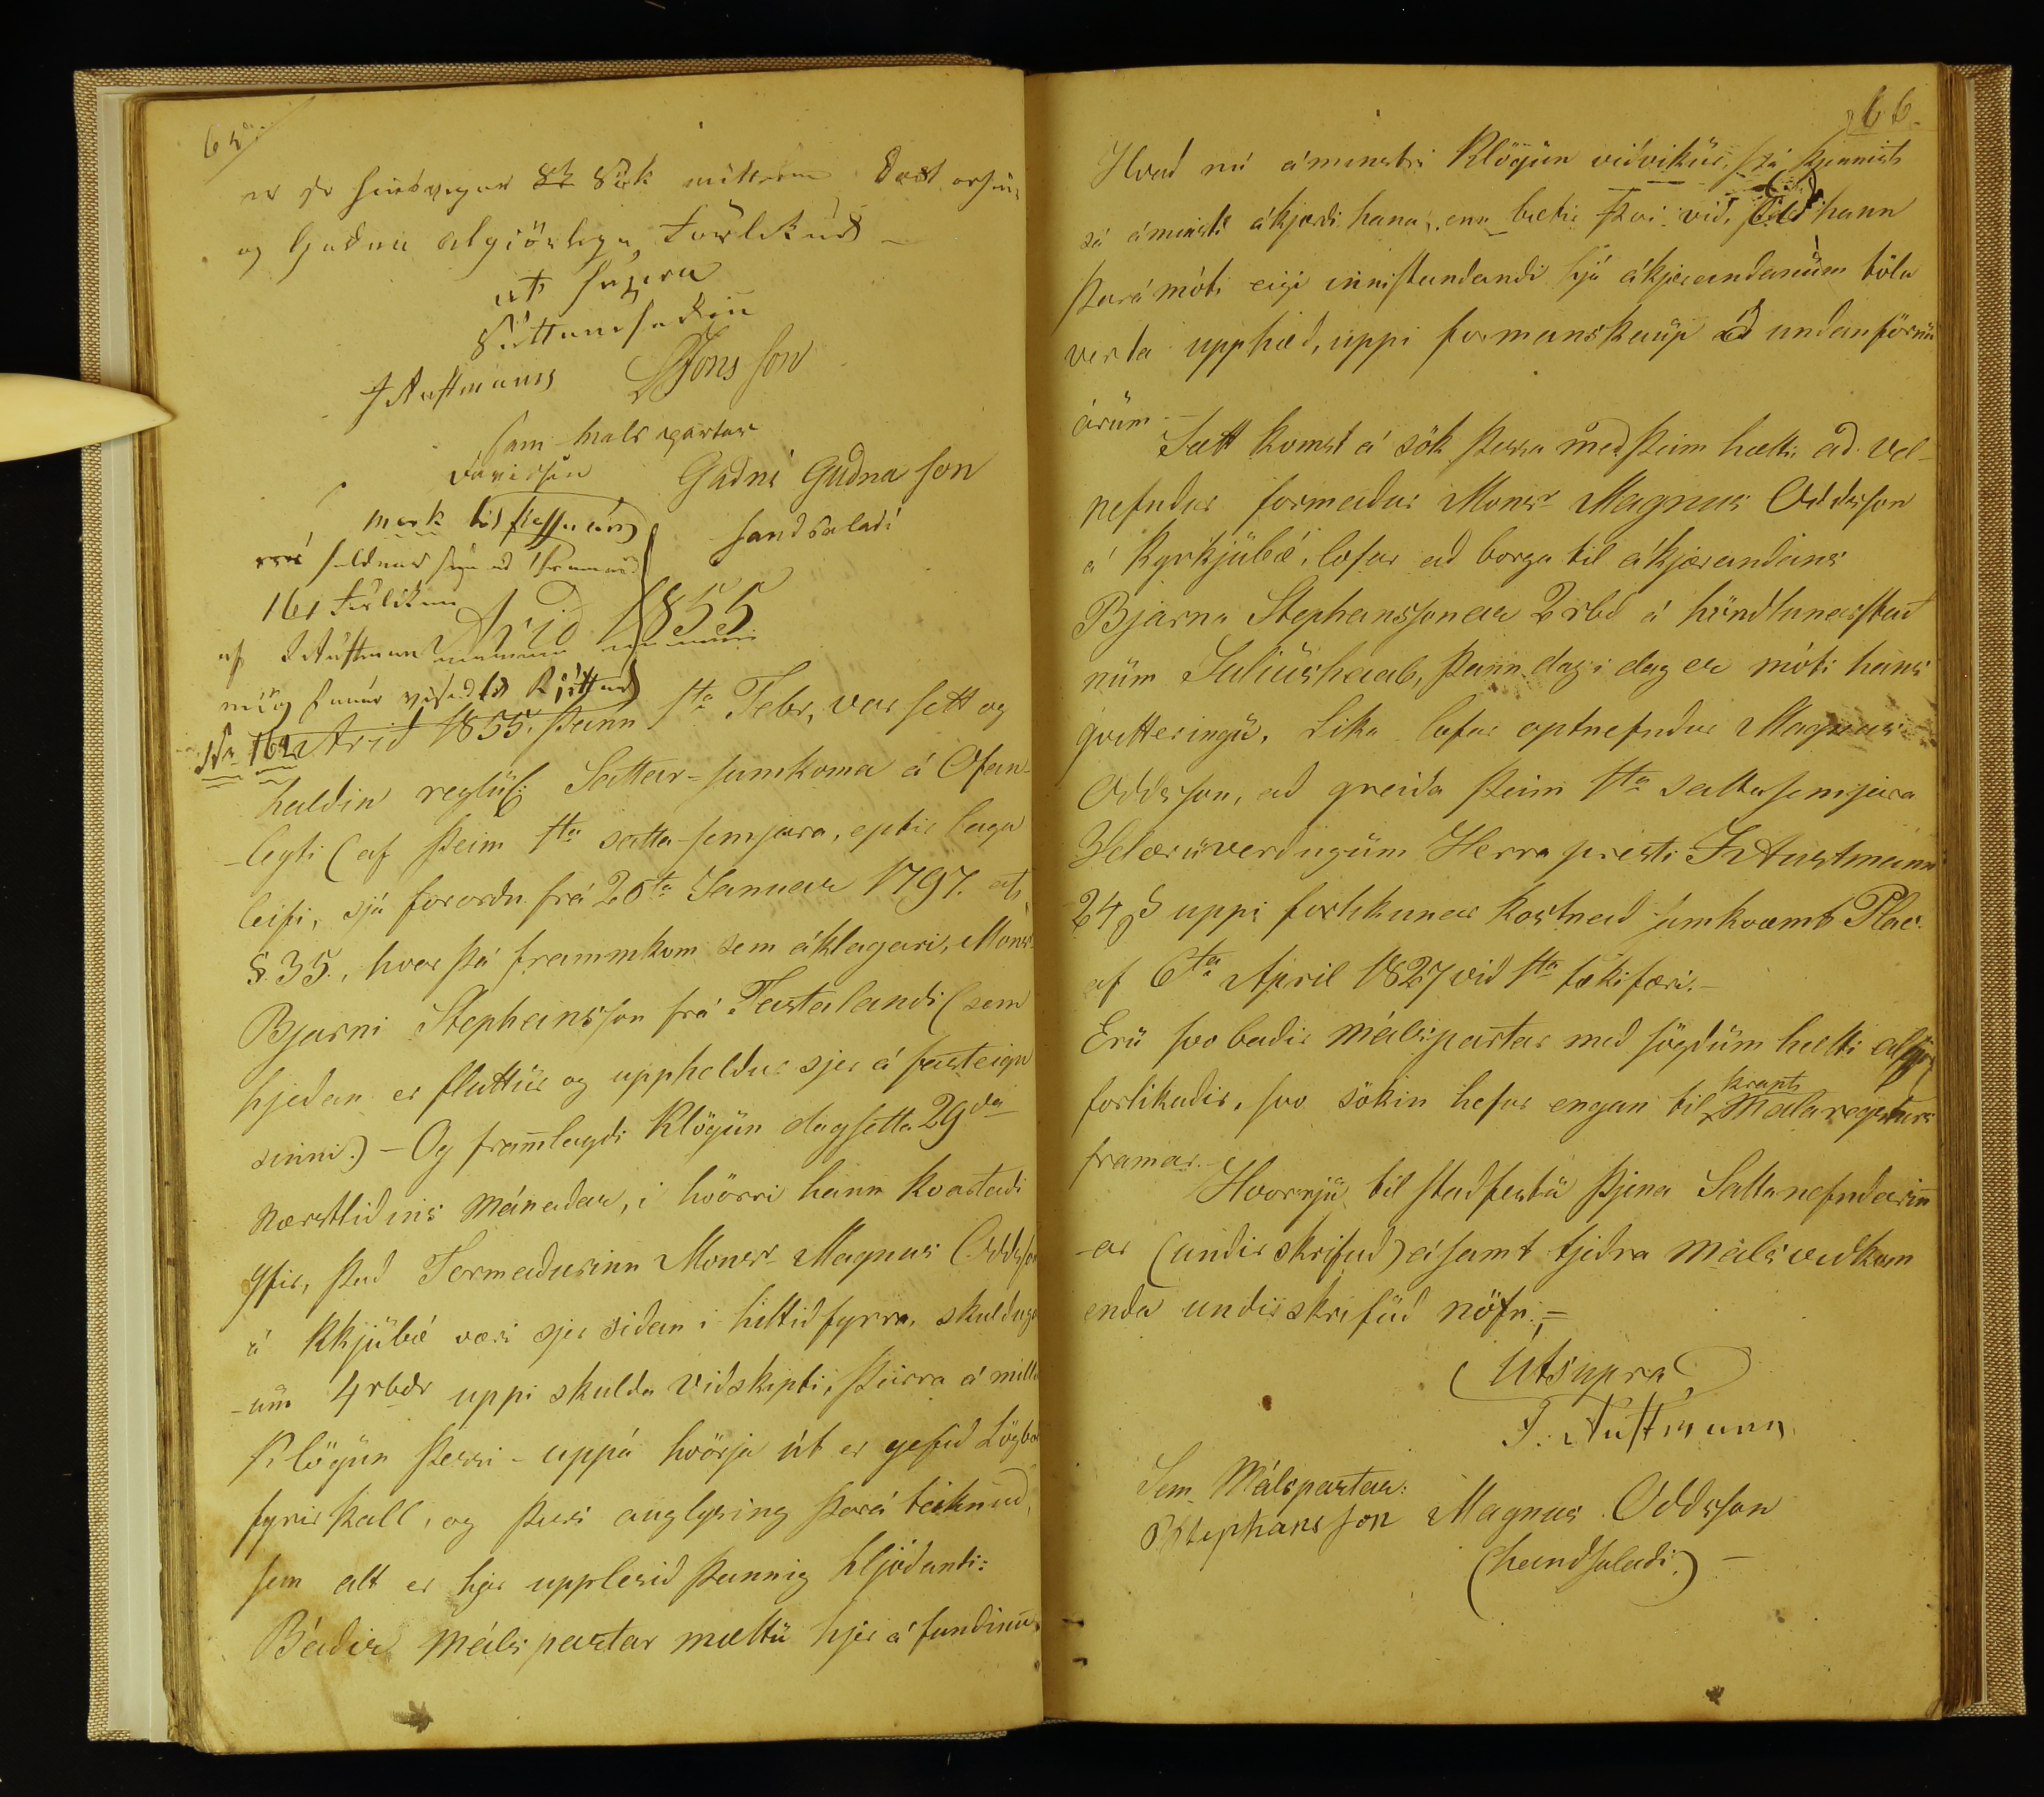 65.
og  algiörlega forlíkud
ut supra
Sáttanefndin
J Austmann JJonsson
sem málspartar
Gudni Gudnason
handsaladi
161
Arid 1855
Nr 162 Arid 1855. þann 1ta Febr, var sett og
haldin reglul: Sattar-samkoma á Ofan-
-leyti (af þeim 1ta satta-semjara, eptir laga
leifi, sjá forordn frá 20ta Januar 1797. ats
§.35., hvar þá frammkom sem áklagari, Monsr
Bjarni Stephansson frá Fastalandi (sem
hjeðan er fluttur og uppheldur sjer á fasteign
sinni.) - Og framlagdi Klögun dagsetta 29da
næstliðins Mánaðar, i hvörri hann kvartaði
yfir, það Formaðurinn Monsr Magnus Oddsson
á Kkjúbæ væri sjer siðan i hittiðfyrra, skuldug-
-um 4rbdr uppi skulda viðskipti, þeirra á milli
Klögun þessi - uppá hvörja út er gefið Lögboð
fyrirkall, og þess auglysing þará teiknuð,
sem alt er hjer upplesið þannig hljóðandi:
Báðir málspartar mættu hjer á fundinum.
66.
Hvað nú áminstri Klögun viðvikur, þá kjennist
sá áminsti ákjærði hana, enn bætir því við, að hann
þarámóti eigi innistandandi hjá ákjærandanum tölu
verða upphæð, uppi formanskaup að undanförnu
árum.
Sætt komst á sök þessa með þeim hætti að vel-
nefndur formaður Monsr Magnus Oddsson
á Kyrkjubæ, lofar að borga til ákjærandans
Bjarna Stephanssonar 2rbd á höndlunarstað
num Juliushaab, þann dag i dag er móti hans
qvitteringu. Lika lofar optnefndur Magnus
Oddsson, að greiða þeim 1ta sattasemjara
Velæruverðugum Herra presti J Austmann
24s uppi forlikunar kostnað samkvæmt Plac.
af 6ta April 1827 við 1ta tækifæri.-
Eru svo baðir málspartar með sögdum hætti algjör
forlikaðir, svo sökin hefur engan til krapts Málareksturs
framar.-
Hvorju til staðfestu þjena Sattanefndarin
-ar (undirskrifuð) ásamt tjeðra málsviðkom
enda undirskrifuð nöfn.=
Utsupra
J. Austmann
Sem Málspartar:
BStephansson Magnus Oddsson
(handsalaði.) -